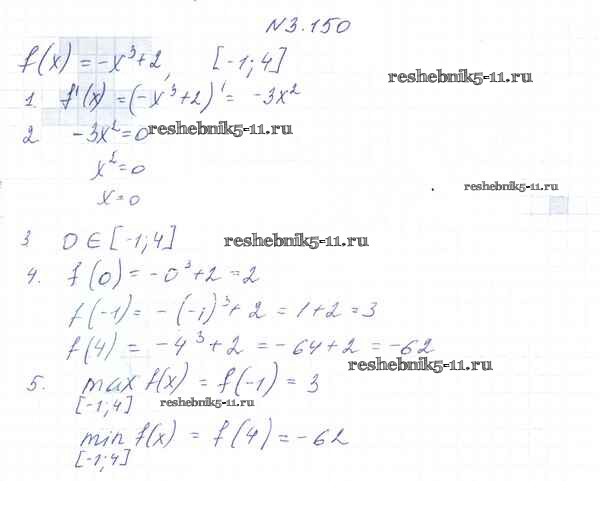 N3.150
f(x) = -x³+2, [-1; 4]
reshebnik5-11.ru
1. f'(x) = (-x³+2)' = -3x²
2 -3x² = 0
reshebnik5-11.ru
x² = 0
reshebnik5-11.ru
x = 0
3 0 ∈ [-1; 4]
reshebnik5-11.ru
4. f(0) = -0³+2 = 2
f(-1) = -(-1)³+2 = 1+2 = 3
f(4) = -4³+2 = -64+2 = -62
reshebnik5-11.ru
5. max f(x) = f(-1) = 3
[-1; 4]
reshebnik5-11.ru
min f(x) = f(4) = -62
[-1; 4]